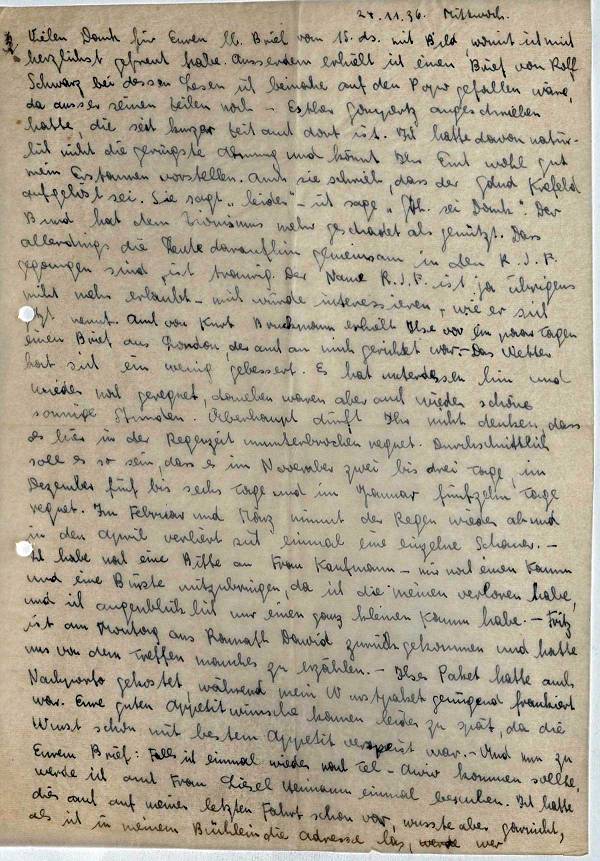 28.11.36. Mittwoch.
Vielen Dank für Euren lb. Brief vom 15. ds. mit Bild, womit ich mich
herzlichst gefreut habe. Ausserdem erhielt ich einen Brief von Rolf
Schwarz bei dessen Lesen ich beinahe auf den Popo gefallen wäre,
da ausser seinen Zeilen noch – Esther Gompertz angeschrieben
hatte, die seit kurzer Zeit auch dort ist. Ich hatte davon natür-
lich nicht die geringste Ahnung und könnt Ihr Euch wohl gut
mein Erstaunen vorstellen. Auch sie schrieb, dass der Bund Krefeld
aufgelöst sei. Sie sagt „leider" – ich sage „Gtt. sei Dank". Der
Bund hat dem Zionismus mehr geschadet als genützt. Dass
allerdings die Leute daraufhin gemeinsam in den R.J.F.
gegangen sind, ist traurig. Der Name R.J.F. ist ja übrigens
nicht mehr erlaubt – mich würde interessieren, wie er sich
jetzt nennt. Auch von Kurt Bruckmann erhielt Ilse vor ein paar Tagen
einen Brief aus London, der auch an mich gerichtet war. – Das Wetter
hat sich ein wenig gebessert. Es hat unterdessen hin und
wieder mal geregnet, daneben waren aber auch wieder schöne
sonnige Stunden. Überhaupt dürft Ihr nicht denken, dass
es hier in der Regenzeit ununterbrochen regnet. Durchschnittlich
soll es so sein, dass es im November zwei bis drei Tage, im
Dezember fünf bis sechs Tage und im Januar fünfzehn Tage
regnet. Im Februar und März nimmt der Regen wieder ab und
in den April verliert sich einmal eine einzelne Schauer. –
Ich habe noch eine Bitte an Frau Kaufmann – mir noch einen Kamm
und eine Bürste mitzubringen, da ich die meinen verloren habe,
und ich augenblicklich nur einen ganz kleinen Kamm habe. – Fritz
ist am Montag aus Ramath Dawid zurückgekommen und hatte
uns von dem Treffen manches zu erzählen. – Ilses Paket hatte auch
Nachporto gekostet, während mein Wurstpaket genügend frankiert
war. Eure guten Appetitwünsche kamen leider zu spät, da die
Wurst schon mit bestem Appetit verspeist war. – Und nun zu
Eurem Brief: Falls ich einmal wieder nach Tel-Awiw kommen sollte,
werde ich auch Frau Liesel Heimann einmal besuchen. Ich hatte
dies auch auf meiner letzten Fahrt schon vor, wusste aber garnicht,
als ich in meinem Büchlein die Adresse las, wer